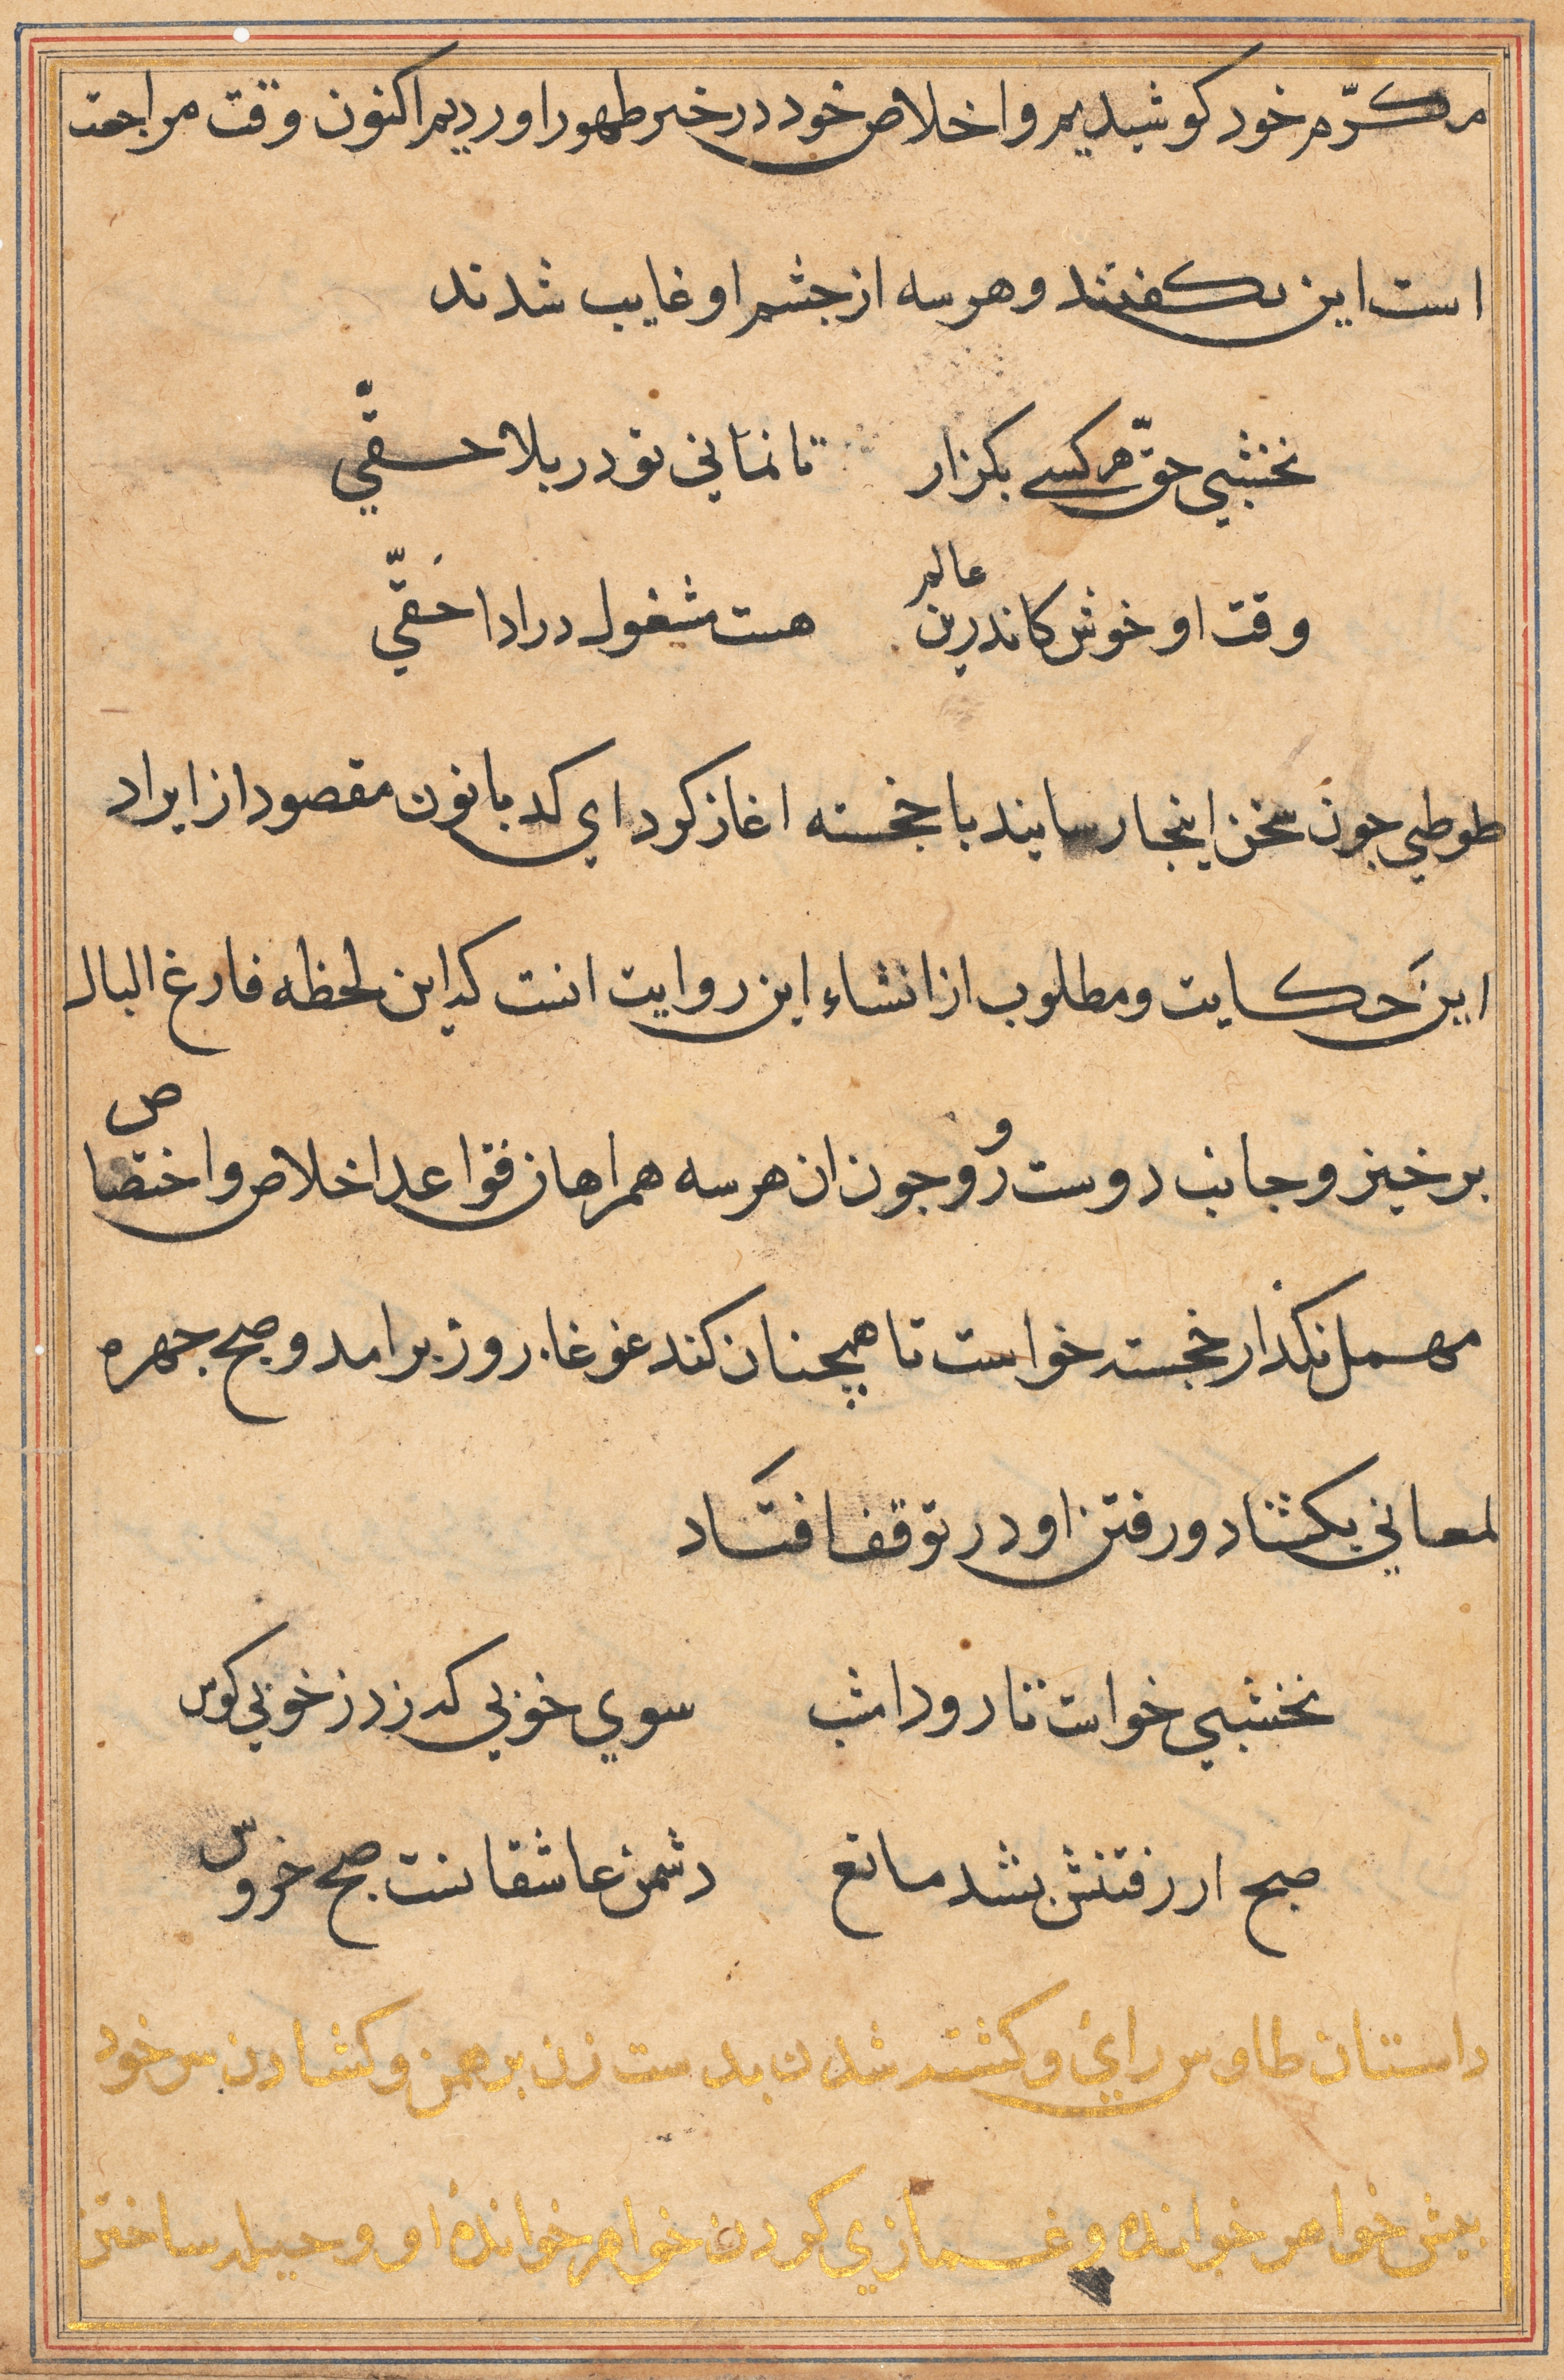 مکرّم خود کوشیدیم و اخلاص خود در خیر ظهور اوردیم اکنون وقت مراجعت
است این بکفتند و هر سه از جشم او غایب شدند
نخشبي حقّ هر کسے بکزار تا نمانی تو در بلا حقّي
وقت او خوش کاندرین عالم هست مشغول در ادا حَقّي
طوطي جون سخن اینجا رسانید با خجسته اغاز کرد اي کدبانون مقصود از ایراد
این حکایت و مطلوب از انشاء این روایت انست که این لحظه فارغ البال
برخیز و جانب دوست رُو و جون ان هر سه همراهان قواعد اخلاص و اختصاص
مهمل نکذار خجسته خواست تا همچنان کند غوغاء روز برامد و صبح جهره
لمعاني بکشاد و رفتن او در توقف افتاد
نخشبي خواست تا رود امشب سوي خوبي که زد ز خوبي کوس
صبح از رفتنش بشد مانع دشمن عاشقانست صبح خروس
داستان طاوس راي و کشته شدن بدست زن برهمن و کشادن سر خود
بیش خواهر خوانده و غمازي کردن خواهر خوانده او و حیله ساختن